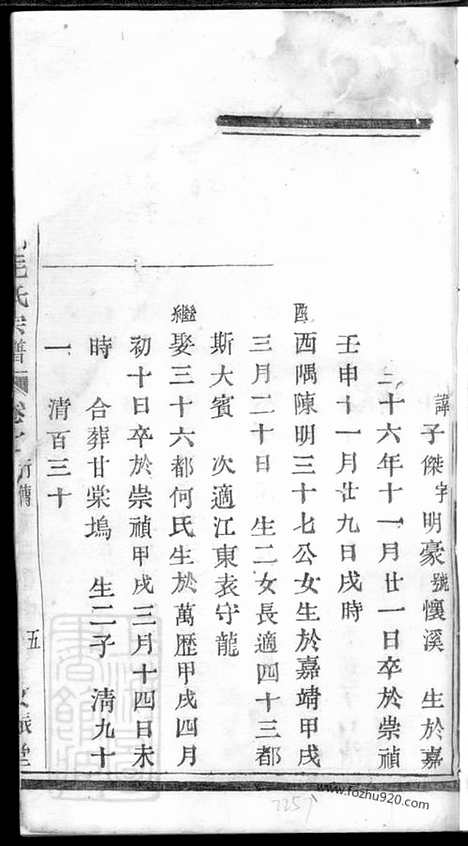 諱子傑字明豪號懷溪 生於嘉
三十六年十一月廿一日卒於崇禎
壬申十一月廿九日戌時
配西隅陳明三十七公女生於嘉靖甲戌
三月二十日 生二女長適四十三都
斯大賓 次適江東袁守龍
繼娶三十六都何氏生於萬歷甲戌四月
初十日卒於崇禎甲戌三月十四日未
時 合葬甘棠塢 生二子 清九十
一 清百三十
毛氏宗譜 卷 行傳 五
www.fozhu920.com